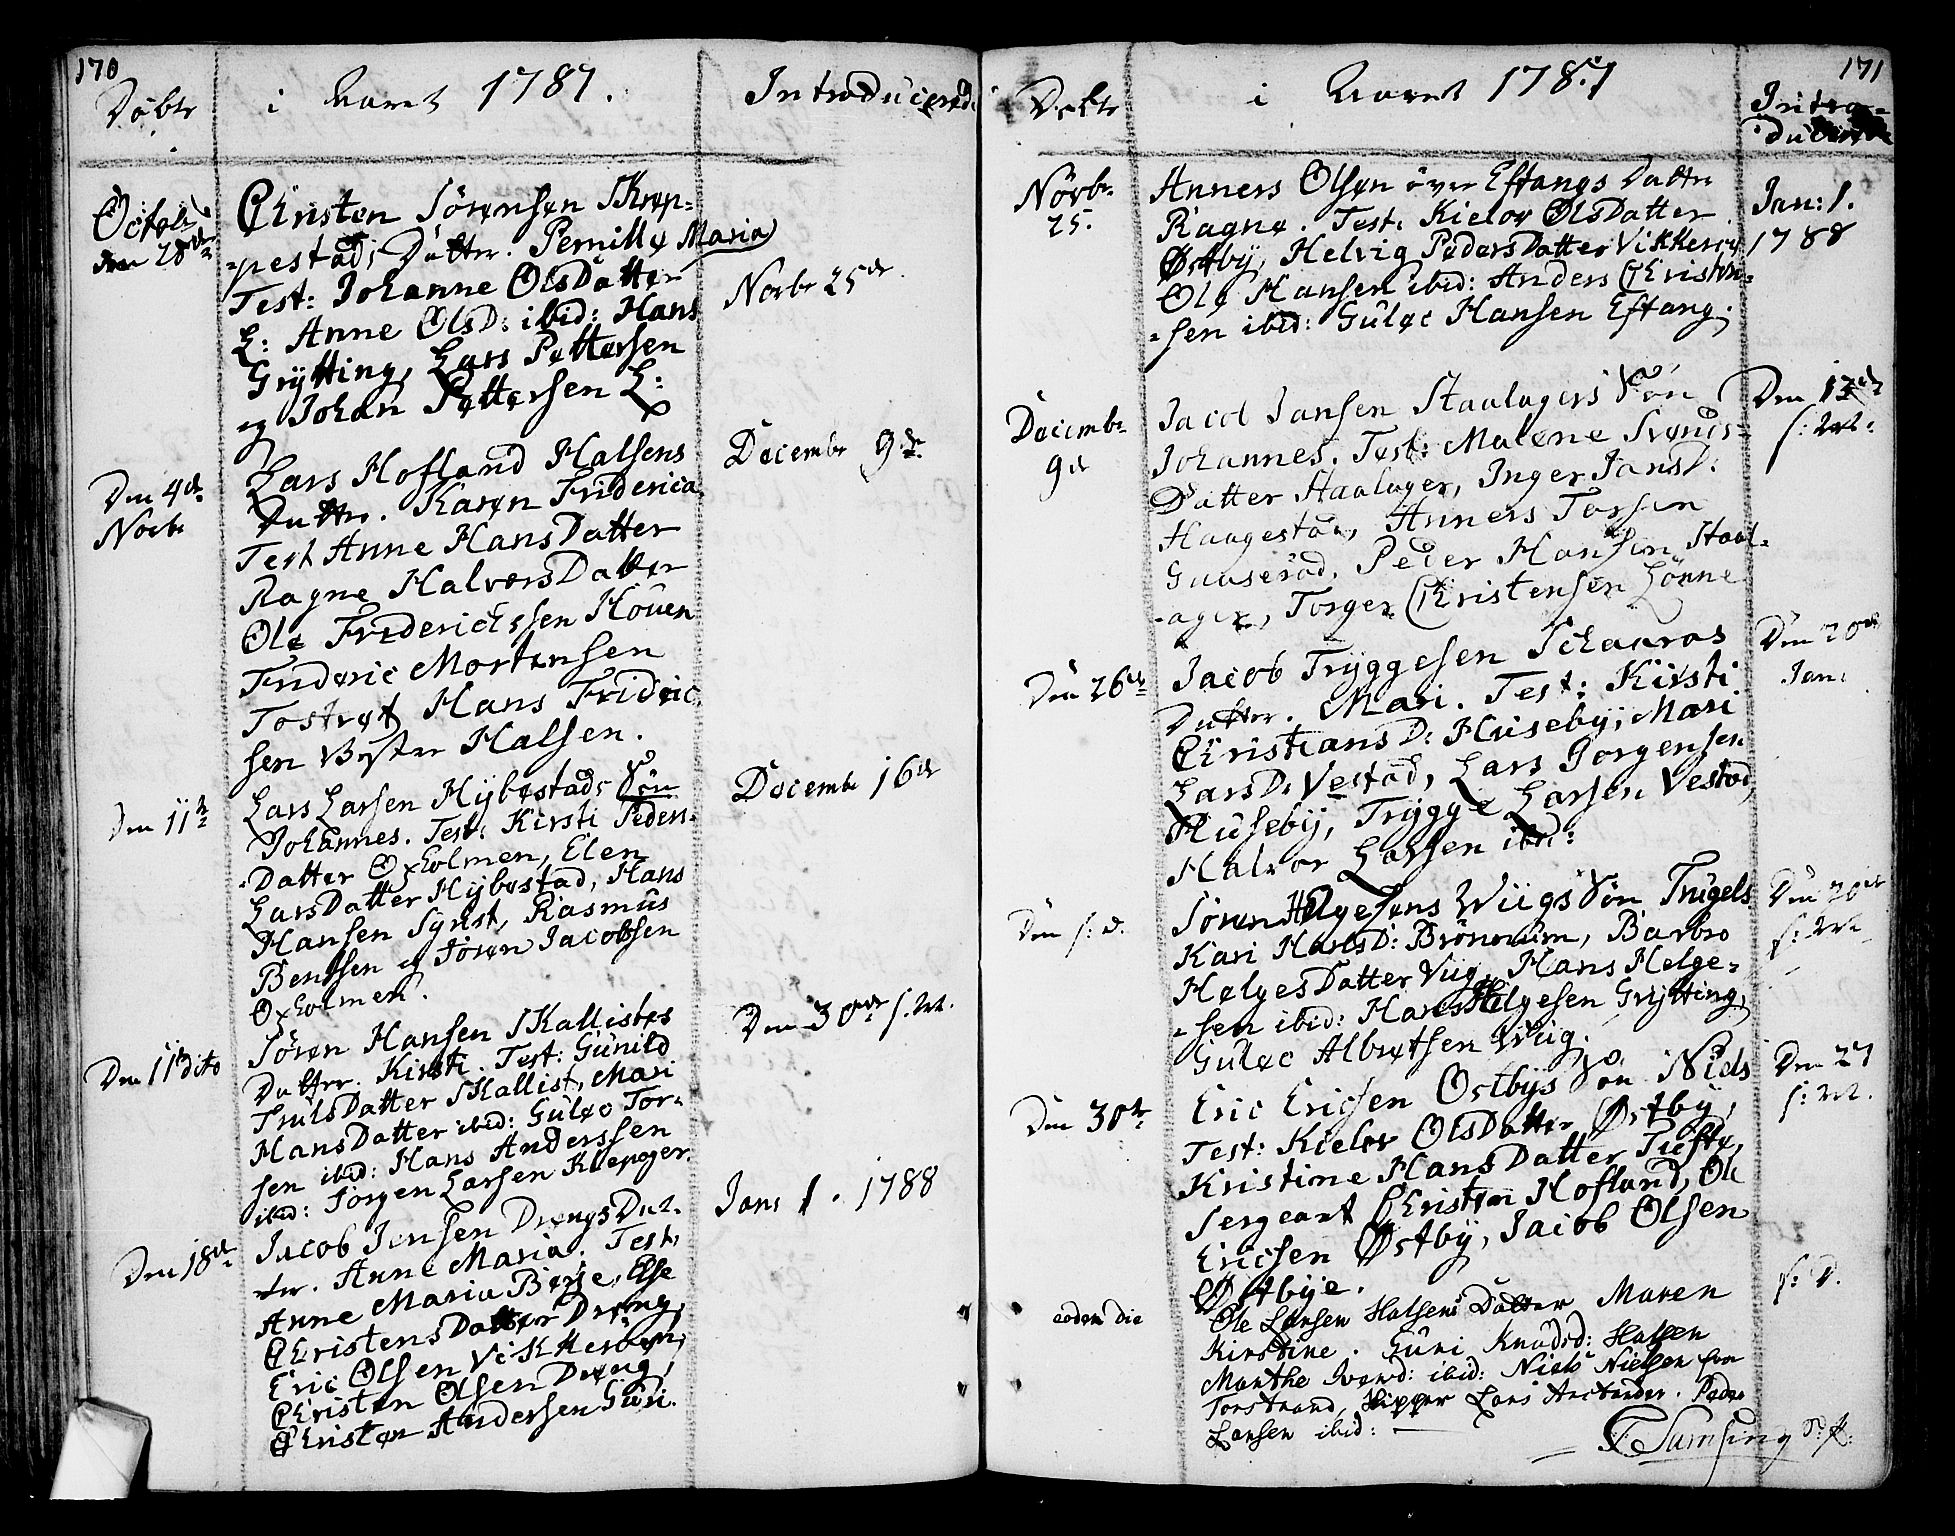 170
Döbte
i Aaret 1787.
Introducerede
Octobr
den 28de
Christen Sörensen Skrep-
-pestads Datter. Pernille Maria
Test: Johanne OlsDatter
L: Anne OlsD: ibid: Hans
Grÿtting, Lars Pettersen
og Johan Pettersen L:
Norbr 25de
Den 4de
Novbr
Lars Hofland Halsens
Datter. Karen Friderica
Test Anne HansDatter
Ragne HalvorsDatter
Ole Friderichssen Houen
Frideric Mortensen
Tostrøt Hans Frideric
sen Halsen.
Decembr 9de
Den 11te
Lars Larsen Hÿbestads Sön
Johannes. Test: Kirsti Peders-
-Datter Oxholmen, Elen
LarsDatter Hÿbestad, Hans
Hansen Sÿrist, Rasmus
Bentsen og Sören Jacobsen
Oxholmen.
Decembr 16de
Den 11te dito
Sören Hansen Skallistes
Datter. Kirsti. Test: Gunild
TrulsDatter Skallist, Mari
HansDatter ibid: Guloc Tor-
sen ibid: Hans Anderssen
ibid: Jörgen Larsen Klepager
Den 30de s: M.
Den 18de
Jacob Jensen Drengs Dat-
ter. Anne Maria. Test:
Anne Maria Börje, Else
ChristensDatter Dreng,
Eric Olsen Vikkeröen,
Christen Olsen Dreng,
Christen Andersen Guri.
Jan: 1. 1788
171
Döbte
i Aaret 1787
Intro-
ducerede
Növbr
25.
Anners Olsen över Eftangs Datter
Ragne. Test: Kielov OlsDatter
Østbÿ, Helvig PedersDatter Vikkeröe
Ole Hansen ibid: Anders Christen-
-sen ibid: Guloc Hansen Eftang.
Jan: 1.
1788
Decembr
9de
Jacob Jansen Staalagers Sön
Johannes. Test: Malene Svends-
Datter Staalager, Inger JansD:
Haagestad, Anners Torsen
Guuseröd, Peder Hansen Staal-
-ager, Torger Christensen Lönne
Den 13de
s: M.
Den 26de
Jacob Trÿggesen Schaaras
Datter. Mari. Test: Kirsti
ChristiansD: Husebÿ, Mari
LarsD: Vestad, Lars Jorgensen
Husebÿ, Trÿgge Larsen Vestad,
Halvor Larsen ibd:
Den 20de
Jan:
Den s: d.
Sören Helgesens Wiigs Sön Trugels
Kari HansD: Brönnum, Barbro
HelgesDatter Viig, Hans Helge-
-sen ibid: Hans Helgesen Grÿtting,
Guloc Albretsen Wiig.
Den 20de
s: M.
Den 30te
Eric Ericsen Østbÿs Sön Niels
Test: Kielov OlsDatter Østbÿ,
Kristine HansDatter Tufte,
Sergeant Christen Hofland, Ole
Ericsen Østbÿ, Jacob Olsen
Østbÿe.
Den 27
s: M.
eodem die
Ole Larsen Halsens Datter Maren
Kirstine. Guri Knudsd: Halsen
Marthe Iversd: ibid: Niels Nielsen fra
Torstrand, Skipper Lars Arctander. Peder
Larsen ibid: —
s: d.